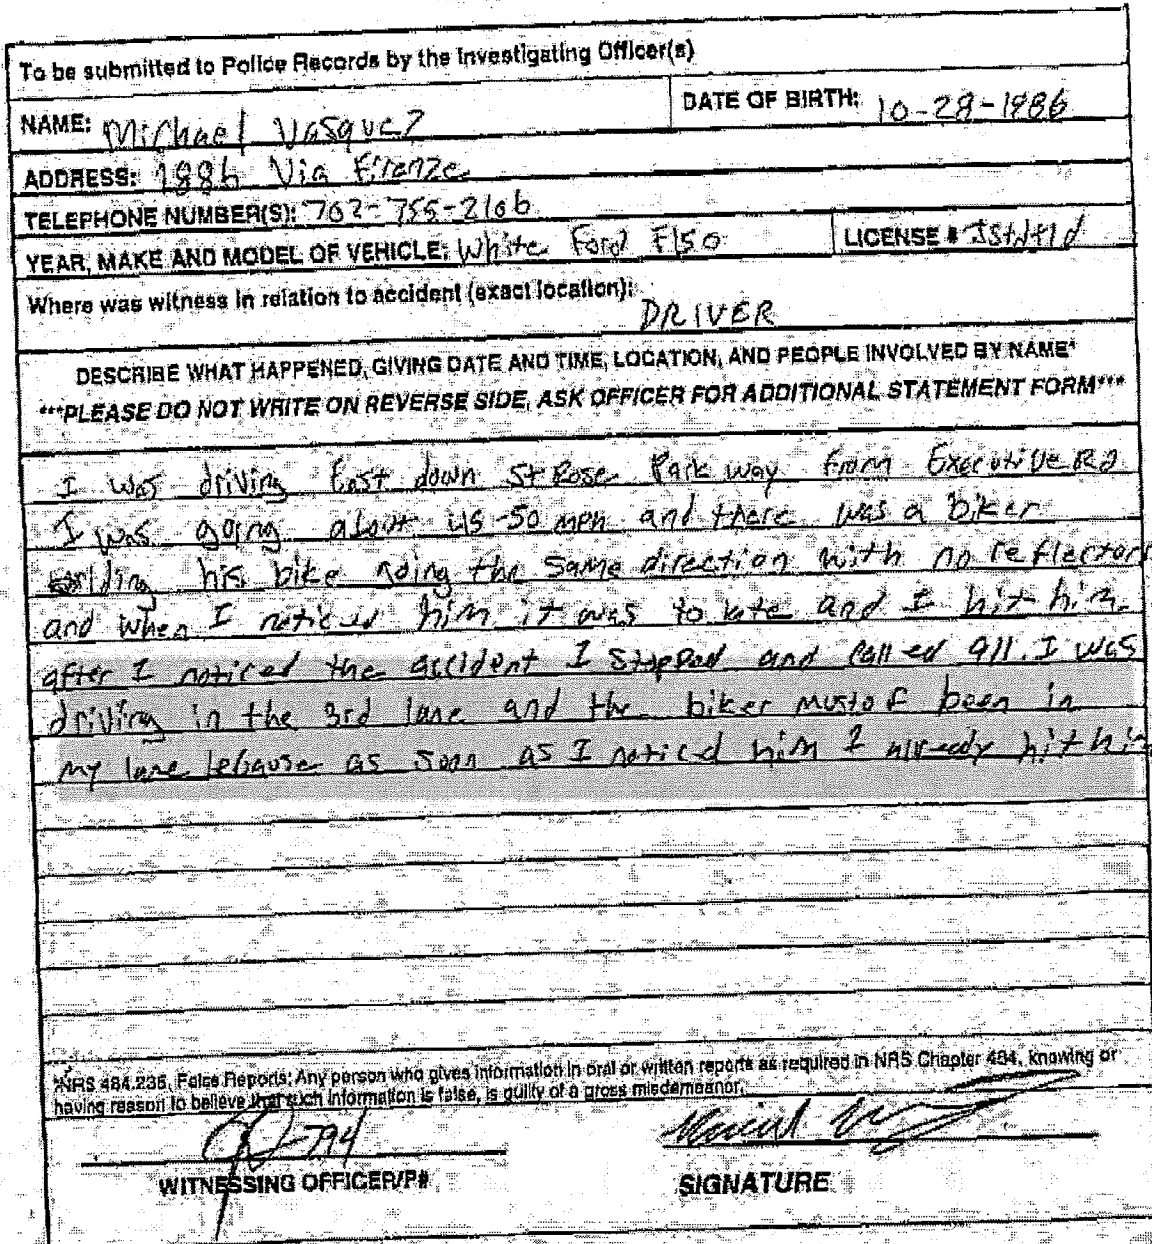 To be submitted to Police Records by the Investigating Officer(s)
NAME: Michael Vasquez DATE OF BIRTH: 10-28-1986
ADDRESS: 1886 Via Firenze
TELEPHONE NUMBER(S): 702-755-2106
YEAR, MAKE AND MODEL OF VEHICLE: White Ford F150 LICENSE #
Where was witness in relation to accident (exact location):
DRIVER
DESCRIBE WHAT HAPPENED, GIVING DATE AND TIME, LOCATION, AND PEOPLE INVOLVED BY NAME*
***PLEASE DO NOT WRITE ON REVERSE SIDE, ASK OFFICER FOR ADDITIONAL STATEMENT FORM***
I was driving East down St Rose Park way from Executive Rd
I was going about 45-50 mph and there was a biker
riding his bike going the same direction with no reflectors
and when I noticed him it was to late and I hit him
after I noticed the accident I stopped and called 911. I was
driving in the 3rd lane and the biker must of been in
my lane because as soon as I noticed him I already hit him
*NRS 484.236, False Reports: Any person who gives information in oral or written reports as required in NRS Chapter 484, knowing or
having reason to believe that such information is false, is guilty of a gross misdemeanor.
794
WITNESSING OFFICER/P# SIGNATURE